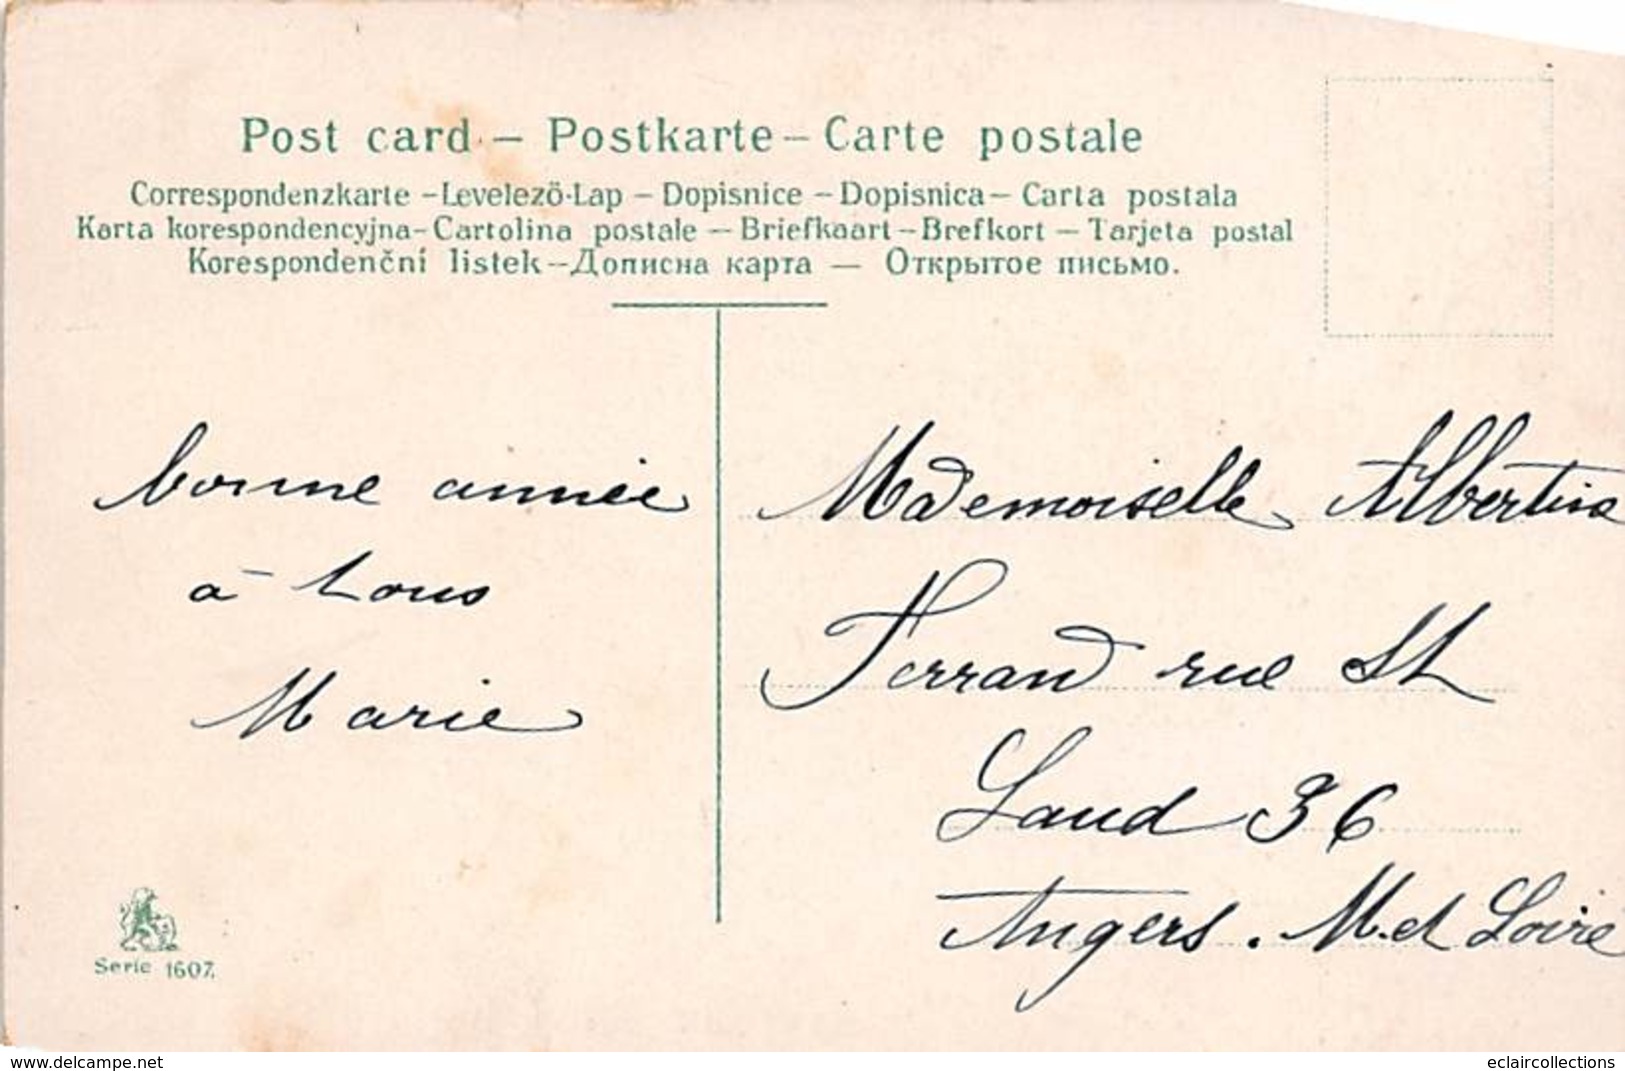 Post card – Postkarte – Carte postale
Correspondenzkarte – Levelezö-Lap – Dopisnice – Dopisnica – Carta postala
Karta korespondencyjna – Cartolina postale – Briefkaart – Brefkort – Tarjeta postal
Korespondenční listek – Дописна карта — Открытое письмо.
bonne année
à tous
Marie
Mademoiselle Albertine
Ferrand rue St
Laud 36
Angers. M. et Loire
Serie 1607.
www.delcampe.net
eclaircollections